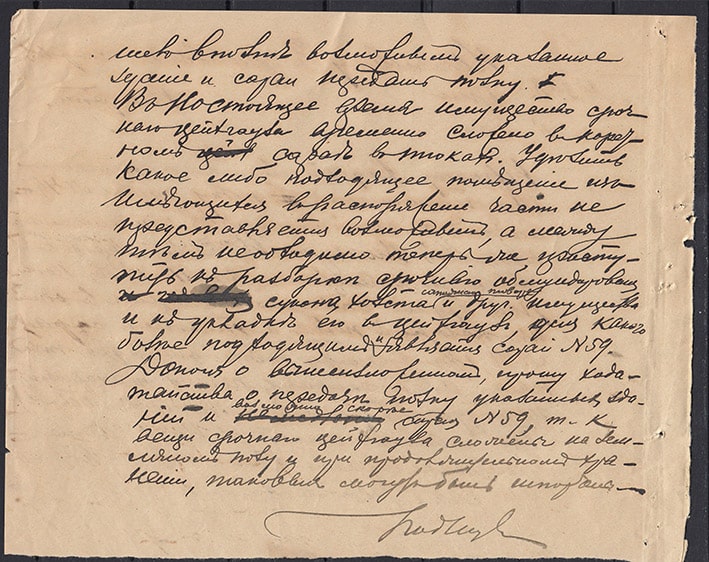 возможность указанное
здание и сараи передать полку.
Въ Настоящее время имущество сроч-
наго цейхгауза временно сложено в карет-
номъ сараѣ в тюкахъ.
какое либо подходящее помѣщение изъ
имѣющихся в распоряжение части не
представляется возможнымъ, а между
тѣмъ необходимо теперь же присту-
пить къ разборкѣ срочнаго обмундирован
сукона, холста и друг. имущества
и къ укладкѣ его в цейхгаузъ, для какого
болѣе подходящимъ является сарай N 59.
Донося о вышеизложенномъ, прошу хода-
тайства о передачѣ полку указанныхъ зда-
ний и возможно скорѣе сарая N 59, т. к.
вещи срочнаго цейхгауза сложены на зем-
ляномъ полу и при продолжительномъ хра-
нении, таковыя могутъ быть испорчены